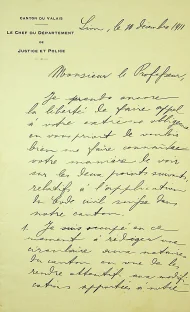 CANTON DU VALAIS
LE CHEF DU DÉPARTEMENT
DE
JUSTICE ET POLICE
Sion, le 10 Décembre 1911
Monsieur le Professeur,
Je prends encore
la liberté de faire appel
à votre extrême
en vous priant de vouloir
bien me faire connaître
votre manière de voir
sur les deux points suivants,
relatifs à l'application
du Code civil suisse dans
notre canton.
1. Je suis occupé en ce
moment à rédiger une
circulaire aux notaires
du canton en vue de les
rendre attentifs aux modifi-
cations apportées à notre